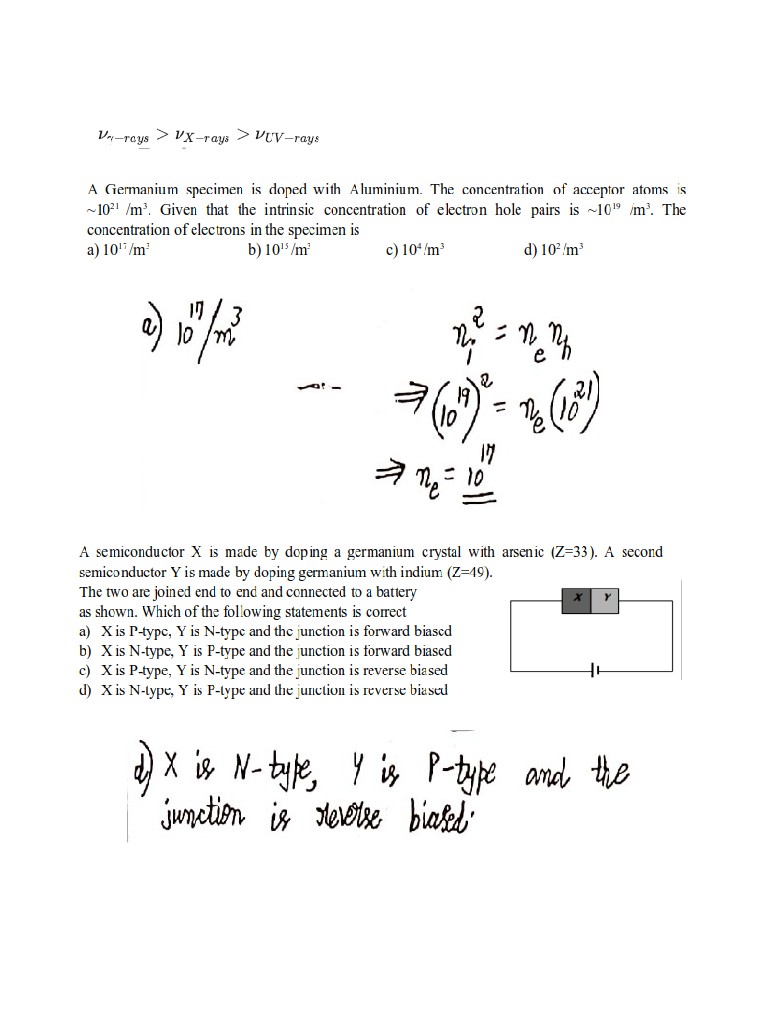 ν𝛾−rays > νX−rays > νUV−rays
A Germanium specimen is doped with Aluminium. The concentration of acceptor atoms is
~10²¹ /m³. Given that the intrinsic concentration of electron hole pairs is ~10¹⁹ /m³. The
concentration of electrons in the specimen is
a) 10¹⁷/m³ b) 10¹⁵/m³ c) 10⁴/m³ d) 10²/m³
a) 10¹⁷/m³
nᵢ² = nₑnₕ
⇒ (10¹⁹)² = nₑ(10²¹)
⇒ nₑ = 10¹⁷
A semiconductor X is made by doping a germanium crystal with arsenic (Z=33). A second
semiconductor Y is made by doping germanium with indium (Z=49).
The two are joined end to end and connected to a battery
as shown. Which of the following statements is correct
X Y
a) X is P-type, Y is N-type and the junction is forward biased
b) X is N-type, Y is P-type and the junction is forward biased
c) X is P-type, Y is N-type and the junction is reverse biased
d) X is N-type, Y is P-type and the junction is reverse biased
d) X is N-type, Y is P-type and the
junction is reverse biased.